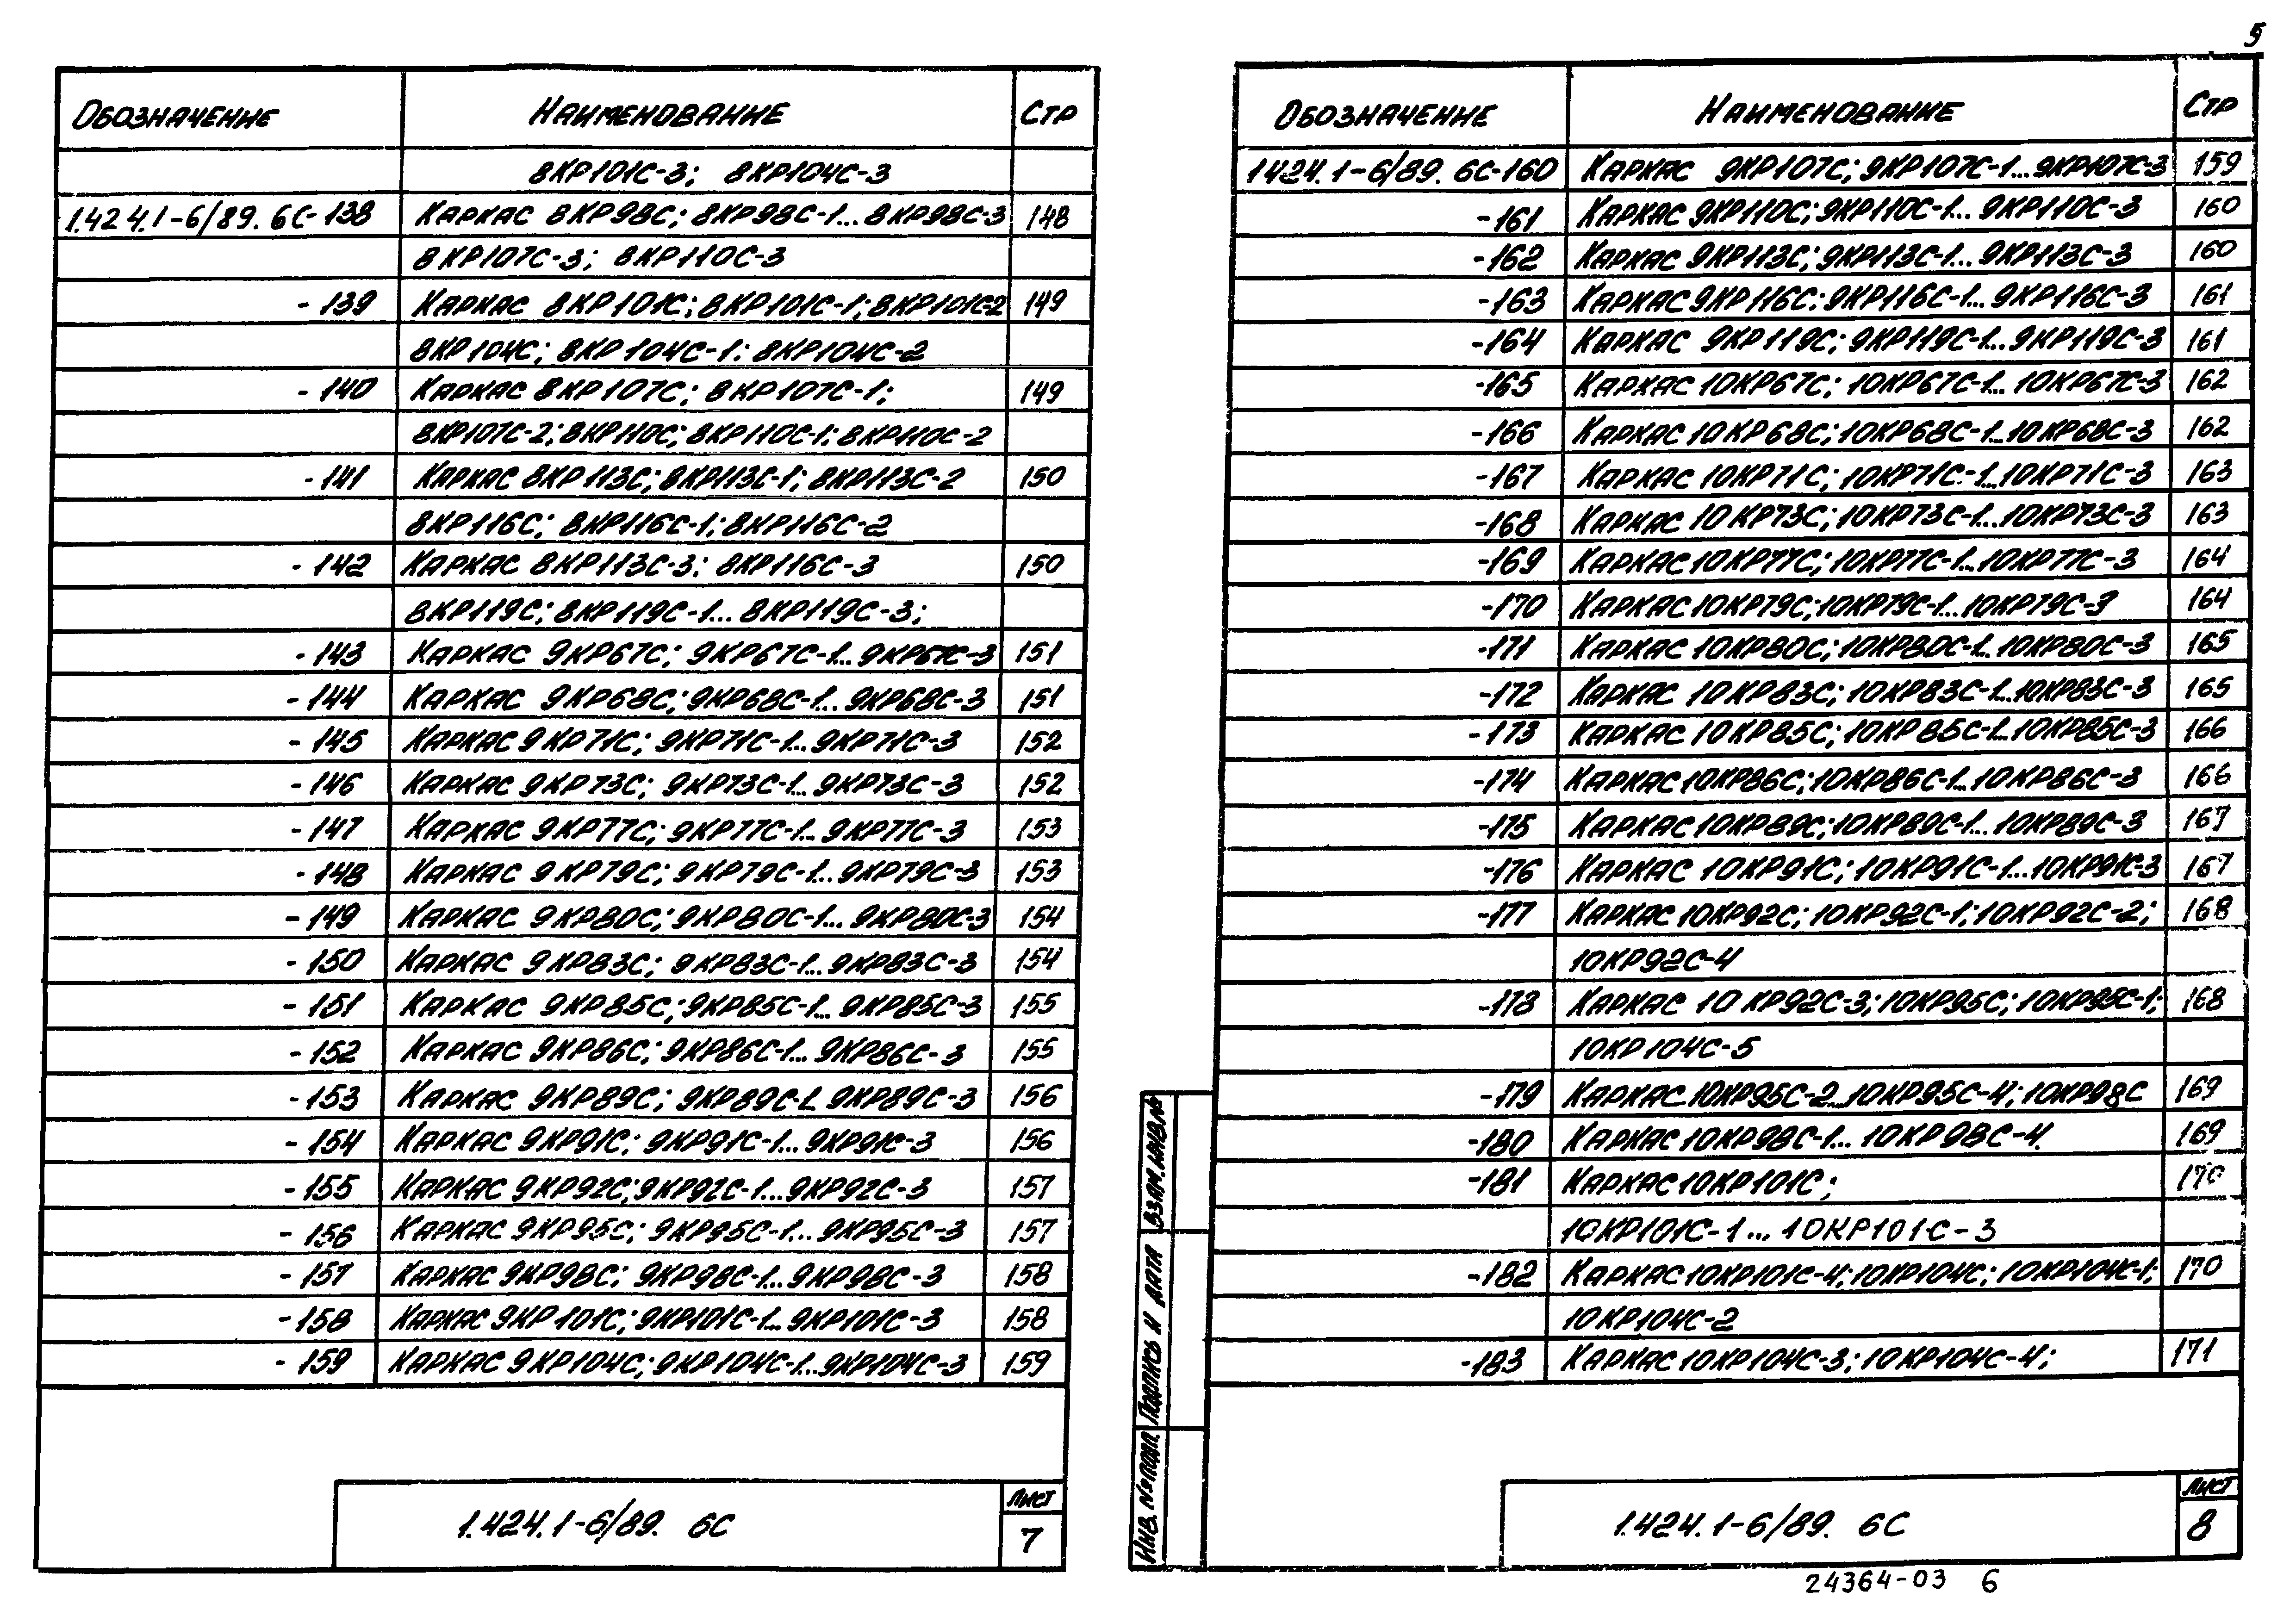 5
Обозначение Наименование Стр
8КР101С-3; 8КР104С-3
1.424.1-6/89. 6С-138 Каркас 8КР98С; 8КР98С-1... 8КР98С-3 148
8КР107С-3; 8КР110С-3
-139 Каркас 8КР101С; 8КР101С-1; 8КР101С-2 149
8КР104С; 8КР104С-1; 8КР104С-2
-140 Каркас 8КР107С; 8КР107С-1; 149
8КР107С-2; 8КР110С; 8КР110С-1; 8КР110С-2
-141 Каркас 8КР113С; 8КР113С-1; 8КР113С-2 150
8КР116С; 8КР116С-1; 8КР116С-2
-142 Каркас 8КР113С-3; 8КР116С-3 150
8КР119С; 8КР119С-1... 8КР119С-3;
-143 Каркас 9КР67С; 9КР67С-1... 9КР67С-3 151
-144 Каркас 9КР68С; 9КР68С-1... 9КР68С-3 151
-145 Каркас 9КР71С; 9КР71С-1... 9КР71С-3 152
-146 Каркас 9КР73С; 9КР73С-1... 9КР73С-3 152
-147 Каркас 9КР77С; 9КР77С-1... 9КР77С-3 153
-148 Каркас 9КР79С; 9КР79С-1... 9КР79С-3 153
-149 Каркас 9КР80С; 9КР80С-1... 9КР80С-3 154
-150 Каркас 9КР83С; 9КР83С-1... 9КР83С-3 154
-151 Каркас 9КР85С; 9КР85С-1... 9КР85С-3 155
-152 Каркас 9КР86С; 9КР86С-1... 9КР86С-3 155
-153 Каркас 9КР89С; 9КР89С-1... 9КР89С-3 156
-154 Каркас 9КР91С; 9КР91С-1... 9КР91С-3 156
-155 Каркас 9КР92С; 9КР92С-1... 9КР92С-3 157
-156 Каркас 9КР95С; 9КР95С-1... 9КР95С-3 157
-157 Каркас 9КР98С; 9КР98С-1... 9КР98С-3 158
-158 Каркас 9КР101С; 9КР101С-1... 9КР101С-3 158
-159 Каркас 9КР104С; 9КР104С-1... 9КР104С-3 159
1.424.1-6/89. 6С
Лист
7
Обозначение Наименование Стр
1.424.1-6/89. 6С-160 Каркас 9КР107С; 9КР107С-1... 9КР107С-3 159
-161 Каркас 9КР110С; 9КР110С-1... 9КР110С-3 160
-162 Каркас 9КР113С; 9КР113С-1... 9КР113С-3 160
-163 Каркас 9КР116С; 9КР116С-1... 9КР116С-3 161
-164 Каркас 9КР119С; 9КР119С-1... 9КР119С-3 161
-165 Каркас 10КР67С; 10КР67С-1... 10КР67С-3 162
-166 Каркас 10КР68С; 10КР68С-1... 10КР68С-3 162
-167 Каркас 10КР71С; 10КР71С-1... 10КР71С-3 163
-168 Каркас 10КР73С; 10КР73С-1... 10КР73С-3 163
-169 Каркас 10КР77С; 10КР77С-1... 10КР77С-3 164
-170 Каркас 10КР79С; 10КР79С-1... 10КР79С-3 164
-171 Каркас 10КР80С; 10КР80С-1... 10КР80С-3 165
-172 Каркас 10КР83С; 10КР83С-1... 10КР83С-3 165
-173 Каркас 10КР85С; 10КР85С-1... 10КР85С-3 166
-174 Каркас 10КР86С; 10КР86С-1... 10КР86С-3 166
-175 Каркас 10КР89С; 10КР89С-1... 10КР89С-3 167
-176 Каркас 10КР91С; 10КР91С-1... 10КР91С-3 167
-177 Каркас 10КР92С; 10КР92С-1; 10КР92С-2; 168
10КР92С-4
-178 Каркас 10КР92С-3; 10КР95С; 10КР95С-1; 168
10КР104С-5
-179 Каркас 10КР95С-2... 10КР95С-4; 10КР98С 169
-180 Каркас 10КР98С-1... 10КР98С-4 169
-181 Каркас 10КР101С; 170
10КР101С-1... 10КР101С-3
-182 Каркас 10КР101С-4; 10КР104С; 10КР104С-1; 170
10КР104С-2
-183 Каркас 10КР104С-3; 10КР104С-4; 171
Взам. инв. №
Подпись и дата
Инв. № подл.
1.424.1-6/89. 6С
Лист
8
24364-03 6